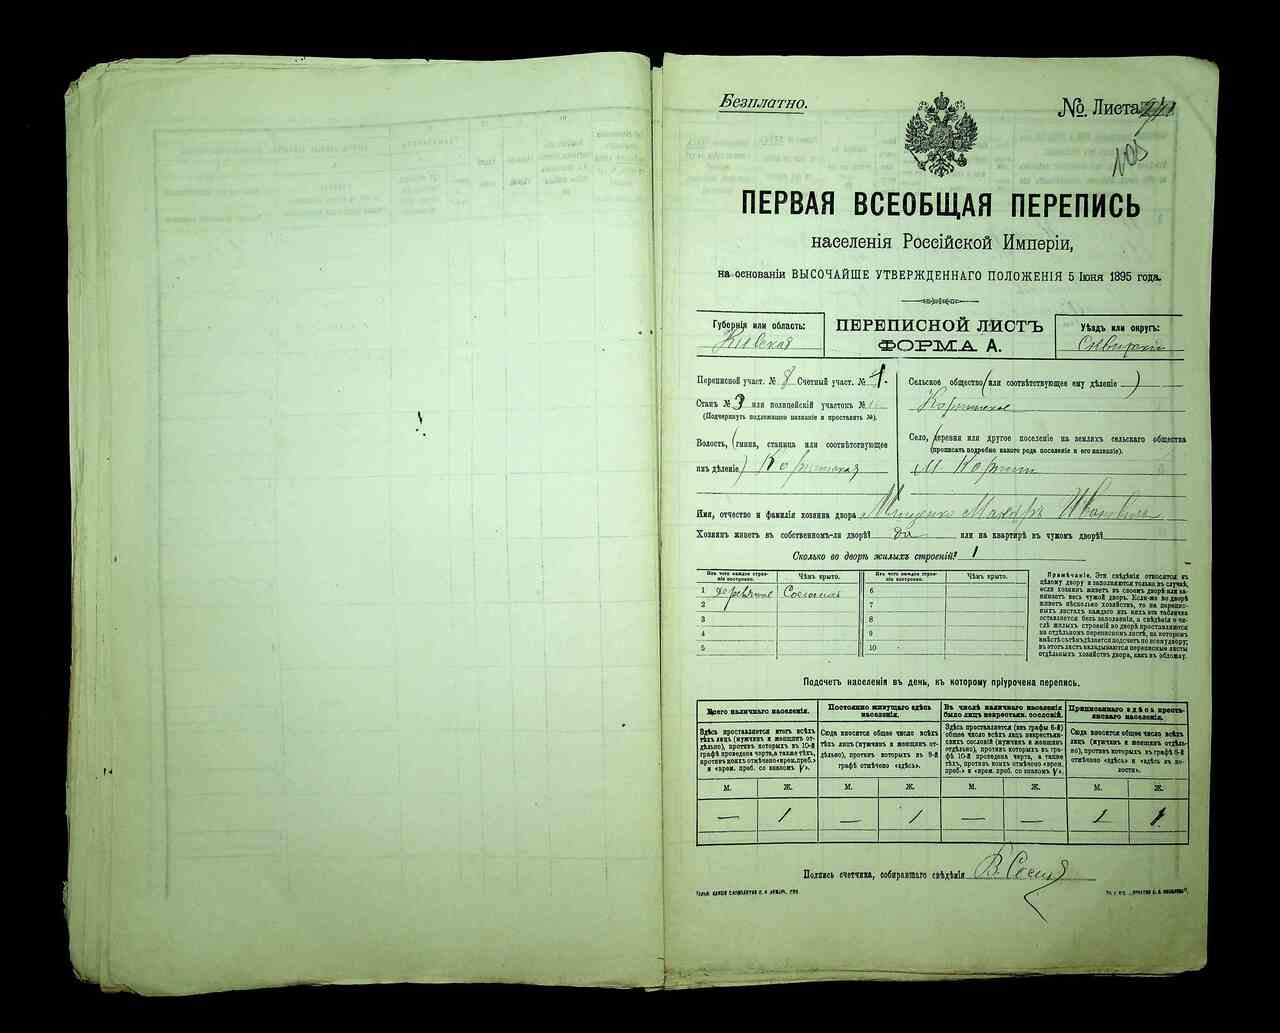 Безплатно.
№. Листа
105
ПЕРВАЯ ВСЕОБЩАЯ ПЕРЕПИСЬ
населенія Россійской Имперіи,
на основаніи ВЫСОЧАЙШЕ УТВЕРЖДЕННАГО ПОЛОЖЕНІЯ 5 Іюня 1895 года.
Губернія или область:
Кіевская
ПЕРЕПИСНОЙ ЛИСТЪ
ФОРМА А.
Уѣздъ или округъ:
Сквирскій
Переписной участ. № 8 Счетный участ. № 1.
Станъ № 3 или полицейскій участокъ №
(Подчеркнуть подлежащее названіе и проставить №).
Волость, (гмина, станица или соотвѣтствующее
имъ дѣленіе)
Сельское общество (или соотвѣтствующее ему дѣленіе)
Село, (деревня или другое поселеніе на земляхъ сельскаго общества
(прописать подробно какого рода поселеніе и его названіе).
Имя, отчество и фамилія хозяина двора Мищенко Макаръ Ивановичъ
Хозяинъ живетъ въ собственномъ-ли дворѣ? да или на квартирѣ въ чужомъ дворѣ?
Сколько во дворѣ жилыхъ строеній? 1
Изъ чего каждое строеніе построено. Чѣмъ крыто. Изъ чего каждое строеніе построено. Чѣмъ крыто.
1 деревянное Соломой 6
2 7
3 8
4 9
5 10
Примѣчаніе. Эти свѣдѣнія относятся къ
цѣлому двору и заполняются только въ случаѣ,
если хозяинъ живетъ въ своемъ дворѣ или занимаетъ весь чужой дворъ. Если-же во дворѣ
живетъ нѣсколько хозяйствъ, то на переписныхъ листахъ каждаго изъ нихъ эта табличка
оставляется безъ заполненія, а свѣдѣнія о числѣ жилыхъ строеній во дворѣ проставляются
на отдѣльномъ переписномъ листѣ, на которомъ
вмѣстѣ съ тѣмъ дѣлается подсчетъ по всему двору;
въ этотъ листъ вкладываются переписные листы
отдѣльныхъ хозяйствъ двора, какъ въ обложку.
Подсчетъ населенія въ день, къ которому пріурочена перепись.
Всего наличнаго населенія.
Здѣсь проставляется итогъ всѣхъ
тѣхъ лицъ (мужчинъ и женщинъ отдѣльно), противъ которыхъ въ 10-й
графѣ проведена черта, а также тѣхъ,
противъ коихъ отмѣчено «врем. преб.»
и «врем. преб. со знакомъ V».
Постоянно живущаго здѣсь
населенія.
Сюда вносится общее число всѣхъ
тѣхъ лицъ (мужчинъ и женщинъ отдѣльно), противъ которыхъ въ 9-й
графѣ отмѣчено «здѣсь».
Въ числѣ наличнаго населенія
было лицъ некрестьян. сословій.
Здѣсь проставляется (изъ графы 6-й)
общее число всѣхъ лицъ некрестьянскихъ сословій (мужчинъ и женщинъ
отдѣльно), противъ которыхъ въ графѣ 10-й проведена черта, а также
тѣхъ, противъ коихъ отмѣчено «врем.
преб.» и «врем. преб. со знакомъ V».
Приписаннаго здѣсь крестьянскаго населенія.
Сюда вносится общее число всѣхъ
лицъ (мужчинъ и женщинъ отдѣльно), противъ которыхъ въ графѣ 8-й
отмѣчено «здѣсь» и «здѣсь въ волости».
М. Ж. М. Ж. М. Ж. М. Ж.
— 1 — 1 — — 1 1
Подпись счетчика, собиравшаго свѣдѣнія